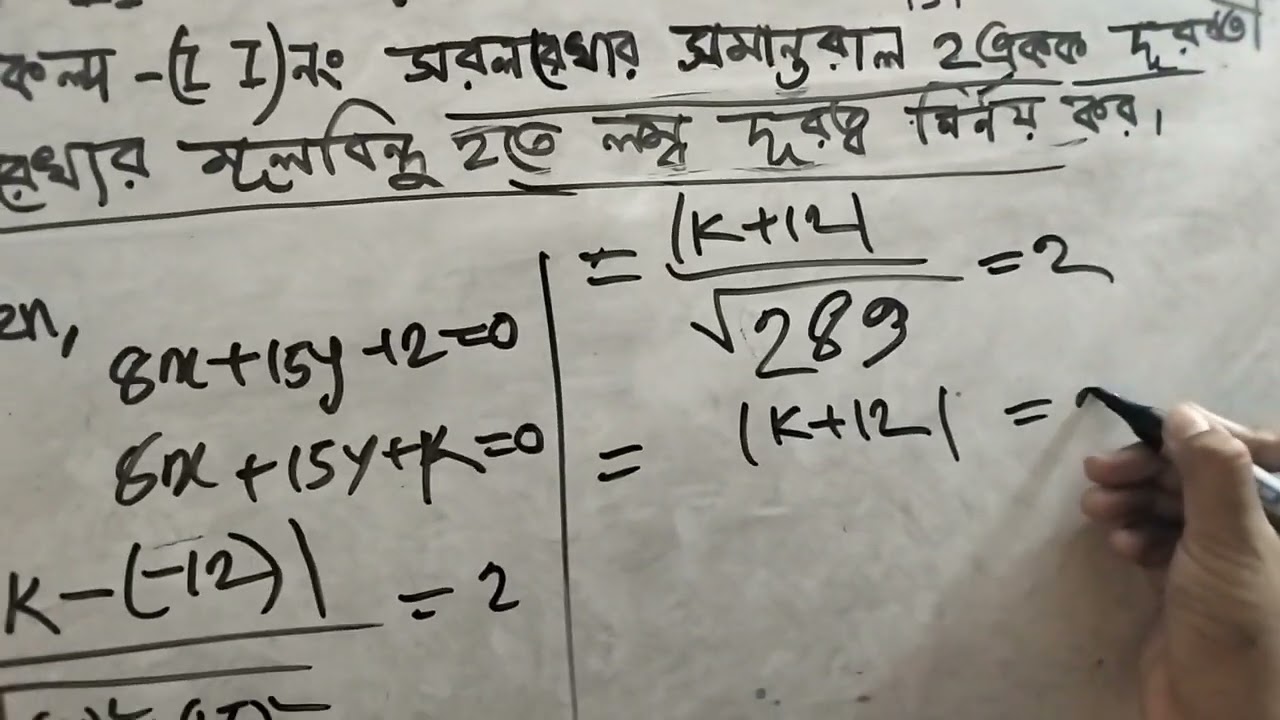 কল্প -(II)নং সরলরেখার সমান্তরাল 2 একক দূরত্বে
রেখার মূলবিন্দু হতে লম্ব দূরত্ব নির্নয় কর।
8x+15y-12=0
8x+15y+K=0
K-(-12)| = 2
= |K+12| / √289 = 2
= |K+12| =